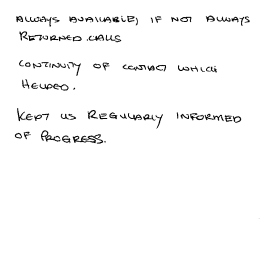 ALWAYS AVAILABLE, IF NOT ALWAYS
RETURNED CALLS
CONTINUITY OF CONTACT WHICH
HELPED.
KEPT US REGULARLY INFORMED
OF PROGRESS.